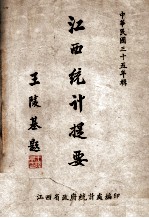 中華民國三十五年輯
江西統計提要
王陵基題
江西省政府統計處編印